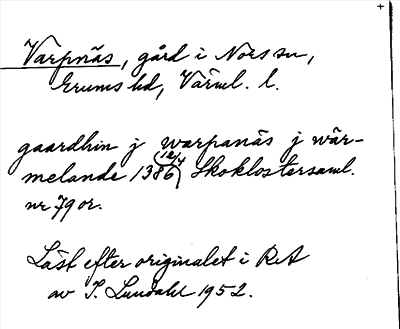 Varpnäs, gård i Nors sn,
Grums hd, Värml. l.
gaardhin j warpanäs j wär-
melande 1386 (12/4) Skoklostersaml.
nr 79 or.
Läst efter originalet i RA
av I. Lundahl 1952.